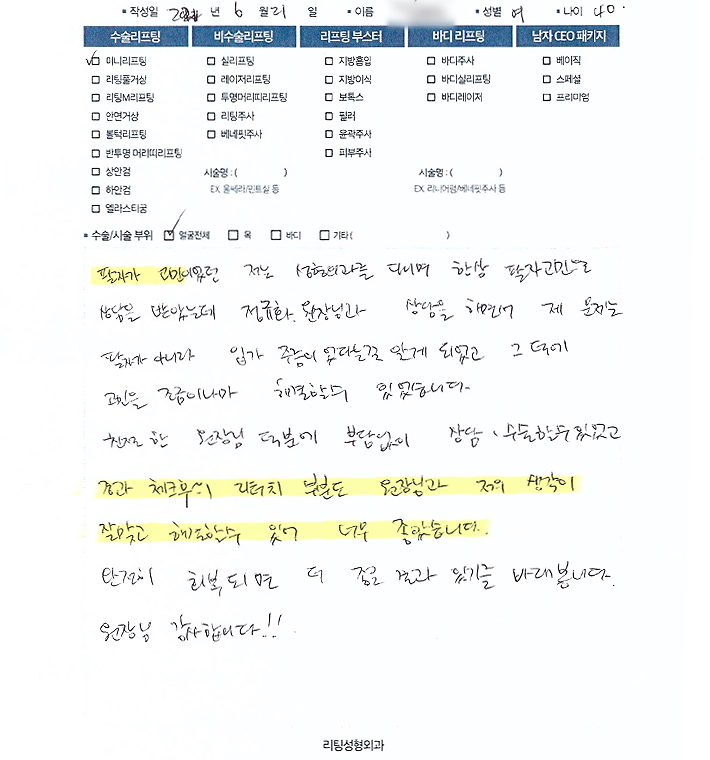 작성일 년 6 월 21 일 이름 성별 여 나이 40.
수술리프팅 비수술리프팅 리프팅 부스터 바디 리프팅 남자 CEO 패키지
미니리프팅 실리프팅 지방흡입 바디주사 베이직
리팅풀거상 레이저리프팅 지방이식 바디실리프팅 스페셜
리팅M리프팅 투명머리띠리프팅 보톡스 바디레이저 프리미엄
안면거상 리팅주사 필러
볼턱리프팅 베네핏주사 윤곽주사
반투명 머리띠리프팅 피부주사
상안검 시술명 : ( ) 시술명 : ( )
하안검 EX. 울쎄라/민트실 등 EX. 리니어펌/베네핏주사 등
엘라스티꿈
수술/시술 부위 얼굴전체 목 바디 기타 ( )
팔자가 고민이었던 저는 성형외과를 다니며 항상 팔자고민으로
상담을 받았는데 정규화 원장님과 상담을 하면서 제 문제는
팔자가 아니라 입가 주름이 있다는걸 알게 되었고 그 덕에
고민을 조금이나마 해결할수 있었습니다.
친절한 원장님 덕분에 부담없이 상담, 수술할수있었고
경과 체크후의 리터치 부분도 원장님과 저의 생각이
잘맞고 해결할수 있어 너무 좋았습니다.
완전히 회복되면 더 좋은 결과 있기를 바래봅니다.
원장님 감사합니다!!
리팅성형외과